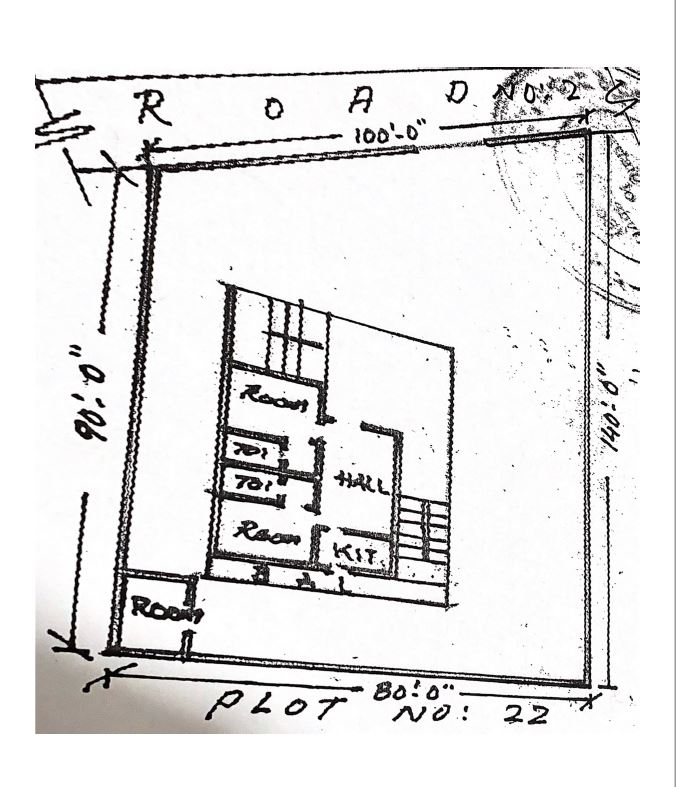 ROAD NO: 2
100'-0"
90'-0"
140'-0"
ROOM
TOI
TOI
HALL
ROOM
KIT.
BAL
ROOM
80'-0"
PLOT NO: 22